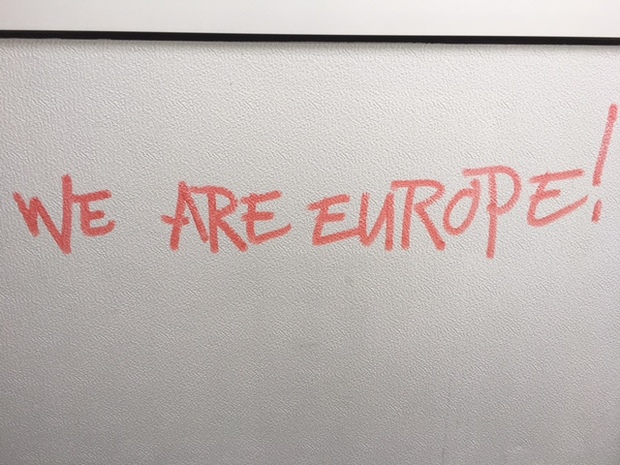 WE ARE EUROPE!